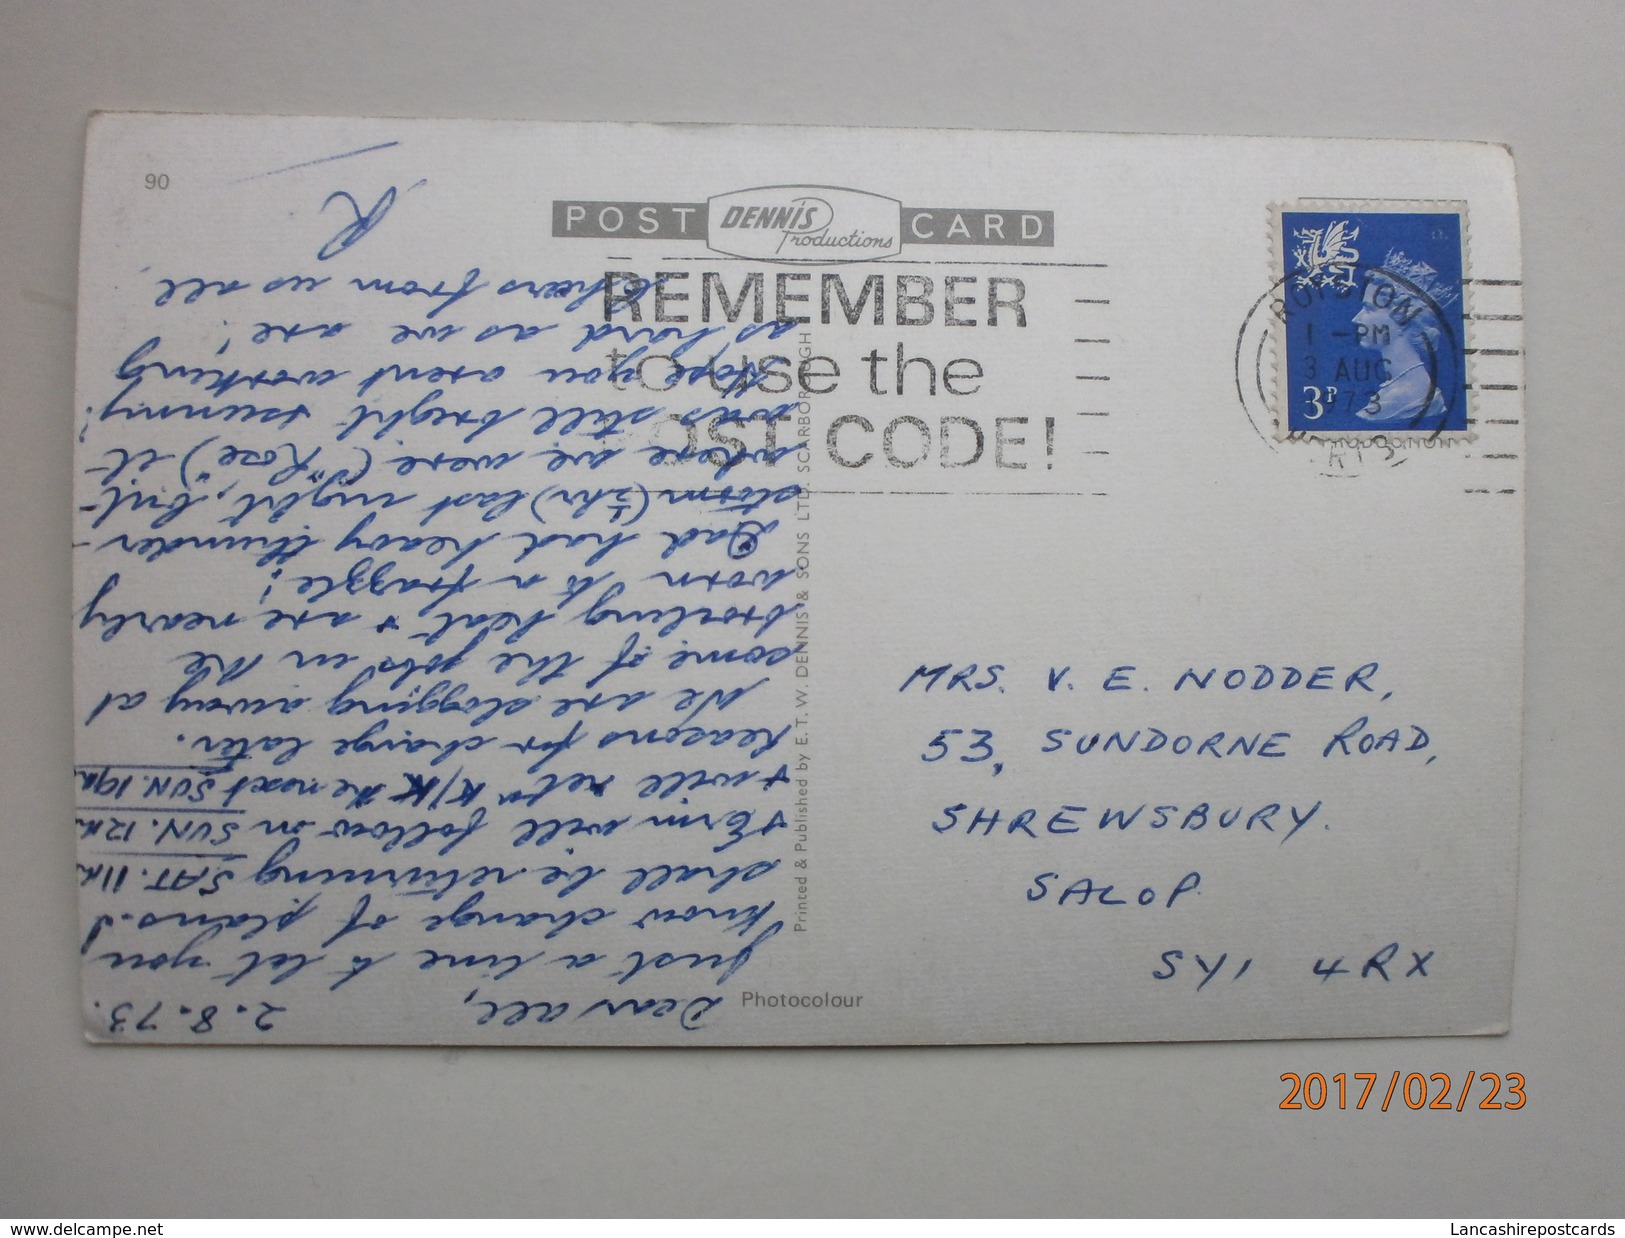 90
POST DENNIS Productions CARD
REMEMBER
to use the
POST CODE!
ROYSTON
1 - PM
3 AUG
1973
HERTS
3P
MRS. V. E. NODDER,
53, SUNDORNE ROAD,
SHREWSBURY.
SALOP.
SY1 4RX
Photocolour
Printed & Published by E. T. W. DENNIS & SONS LTD. SCARBOROUGH
2.8.73.
Dear all,
Just a line to let you
know change of plans. I
shall be returning SAT. 11th
+ Erin will follow on SUN. 12th
+ will retn K/K the next SUN. 19th
Reasons for change later.
We are slogging away at
some of the jobs in the
broiling heat + are nearly
worn to a frazzle!
Dad had heavy thunder-
storm (½hr) last night, but
where we were ("Rose") it
was still bright + sunny!
Hope you arent working
as hard as we are!
Cheers from us all
R
2017/02/23
delcampe.net
Lancashirepostcards